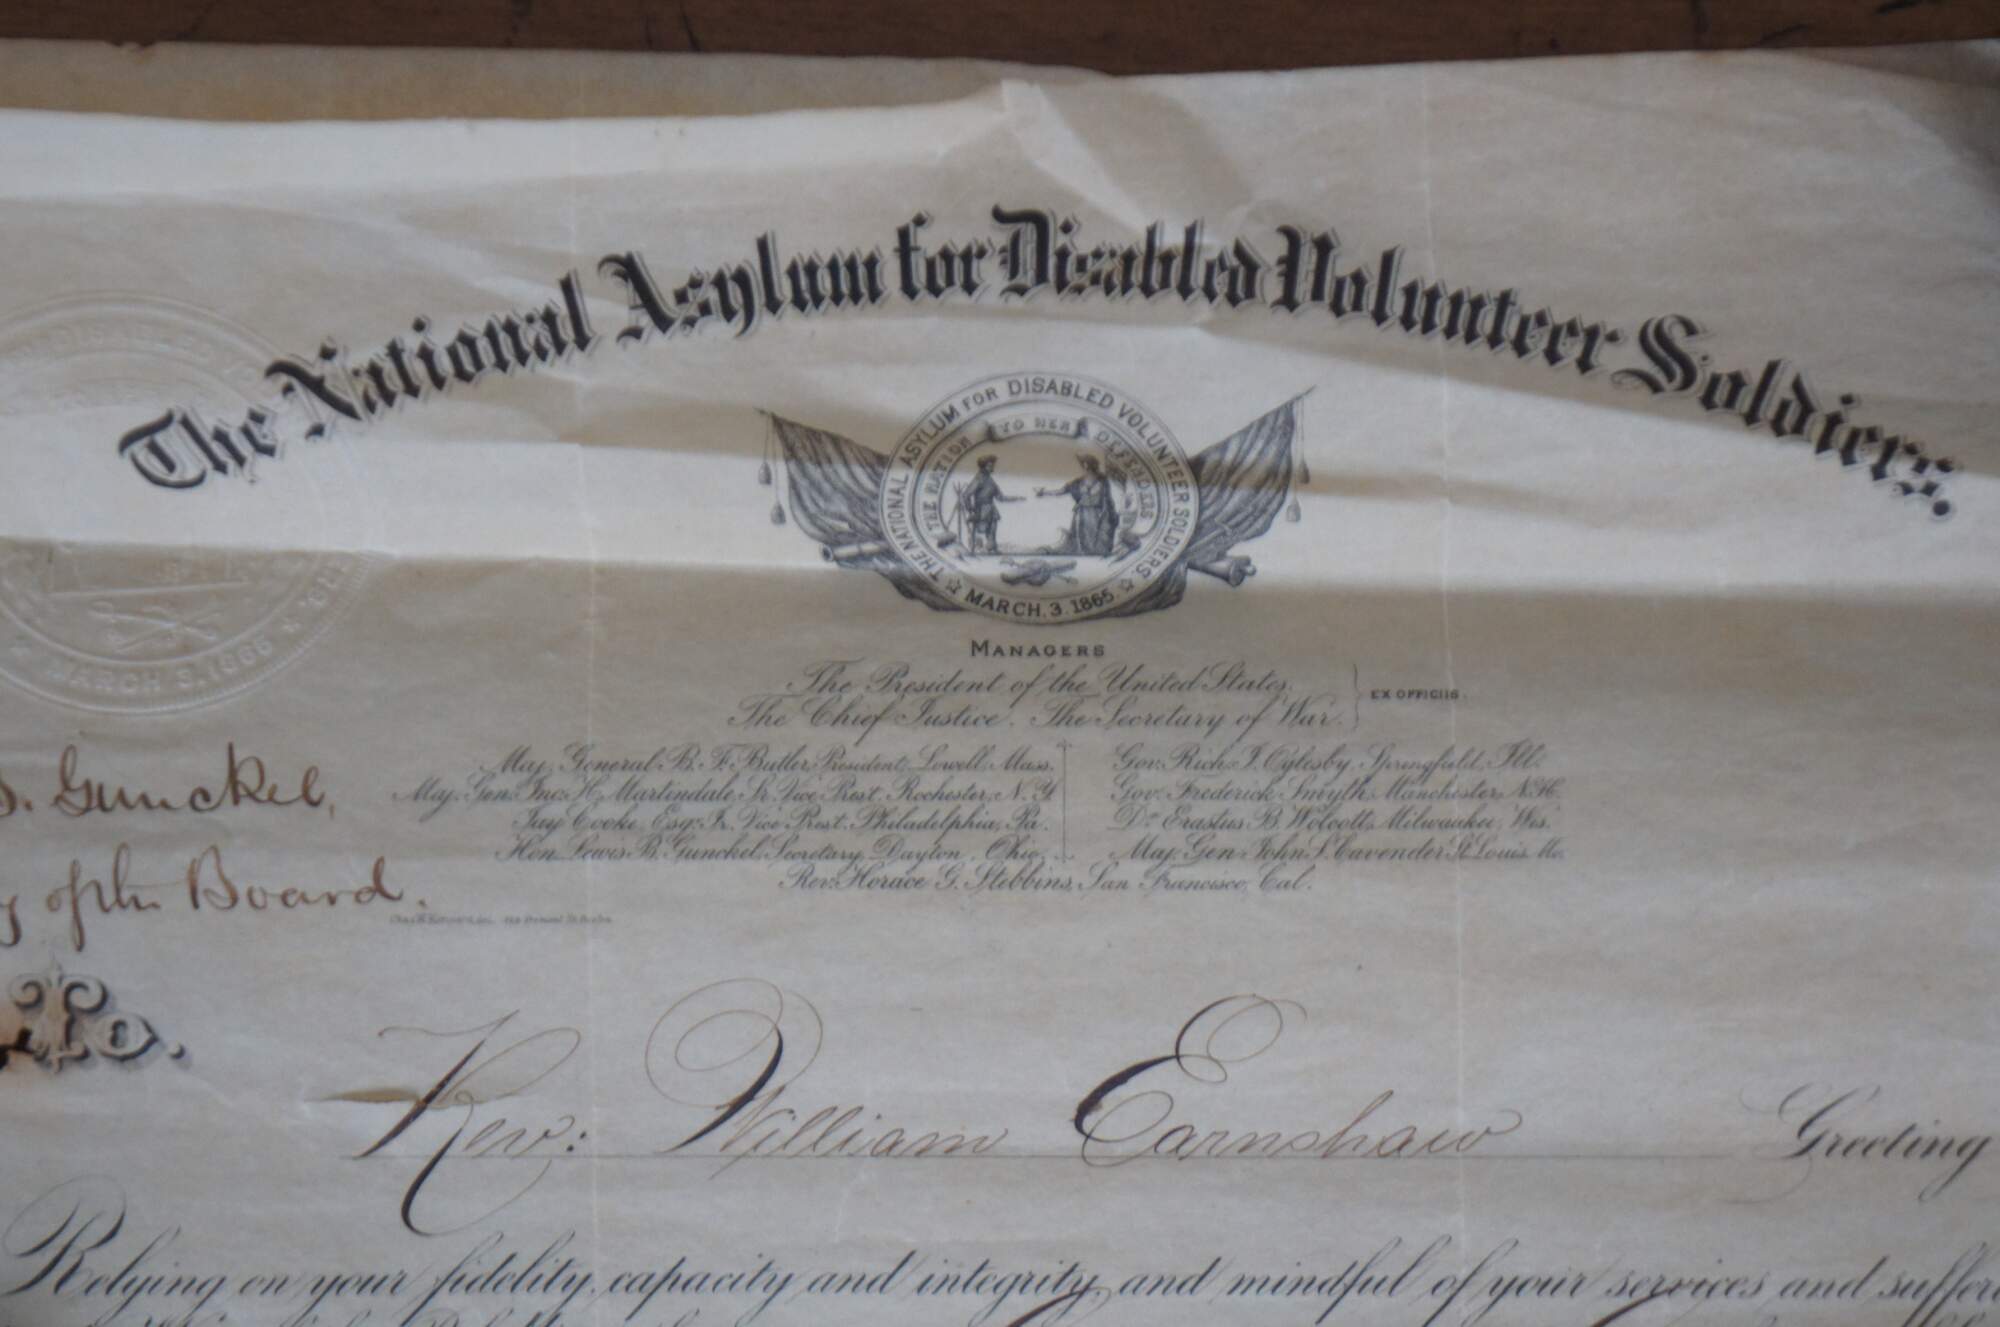 The National Asylum for Disabled Volunteer Soldiers.
THE NATIONAL ASYLUM FOR DISABLED VOLUNTEER SOLDIERS.
THE NATION TO HER DEFENDERS
MARCH. 3. 1865
MARCH 3. 1865
MANAGERS
The President of the United States,
The Chief Justice. The Secretary of War.
EX OFFICIIS.
Maj. General B. F. Butler, President, Lowell, Mass.
Maj. Gen. Jno. H. Martindale, Sr. Vice Prest. Rochester, N.Y.
Jay Cooke, Esq. Jr. Vice Prest. Philadelphia, Pa.
Hon. Lewis B. Gunckel, Secretary, Dayton, Ohio.
Gov. Rich. J. Oglesby, Springfield, Ill.
Gov. Frederick Smyth, Manchester, N.H.
Dr. Erastus B. Wolcott, Milwaukee, Wis.
Maj. Gen. John S. Cavender St. Louis. Mo.
Rev. Horace G. Stebbins, San Francisco, Cal.
Gunckel,
of the Board.
To.
Rev: William Earnshaw Greeting
Relying on your fidelity, capacity and integrity, and mindful of your services and